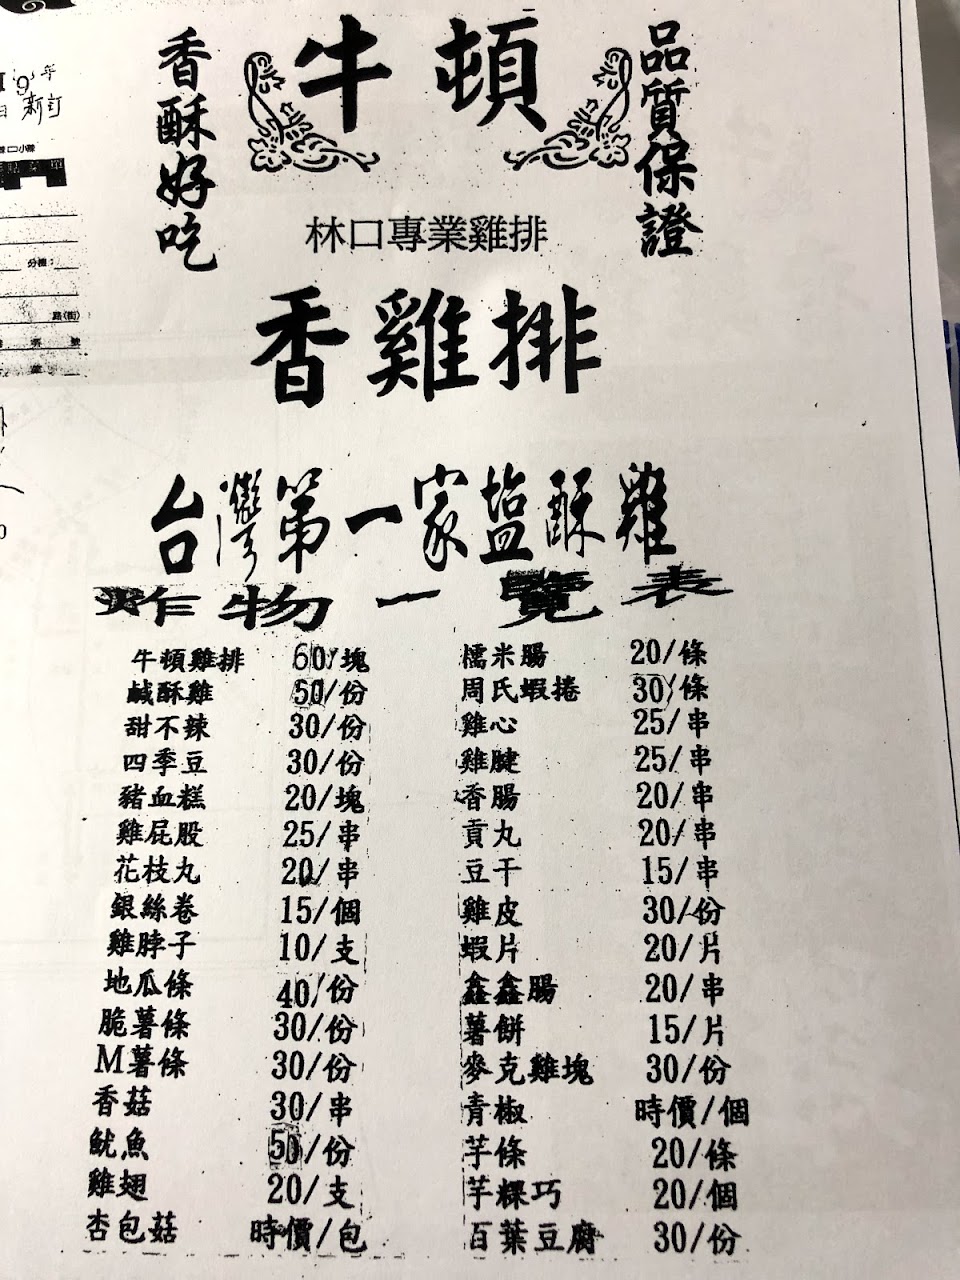 香酥好吃
牛頓
品質保證
林口專業雞排
香雞排
台灣第一家塩酥雞
炸物一覽表
牛頓雞排 60/塊
鹹酥雞 50/份
甜不辣 30/份
四季豆 30/份
豬血糕 20/塊
雞屁股 25/串
花枝丸 20/串
銀絲卷 15/個
雞脖子 10/支
地瓜條 40/份
脆薯條 30/份
M薯條 30/份
香菇 30/串
魷魚 50/份
雞翅 20/支
杏包菇 時價/包
糯米腸 20/條
周氏蝦捲 30/條
雞心 25/串
雞腱 25/串
香腸 20/串
貢丸 20/串
豆干 15/串
雞皮 30/份
蝦片 20/片
鑫鑫腸 20/串
薯餅 15/片
麥克雞塊 30/份
青椒 時價/個
芋條 20/條
芋粿巧 20/個
百葉豆腐 30/份
年
新訂
分機：
路(街)
號